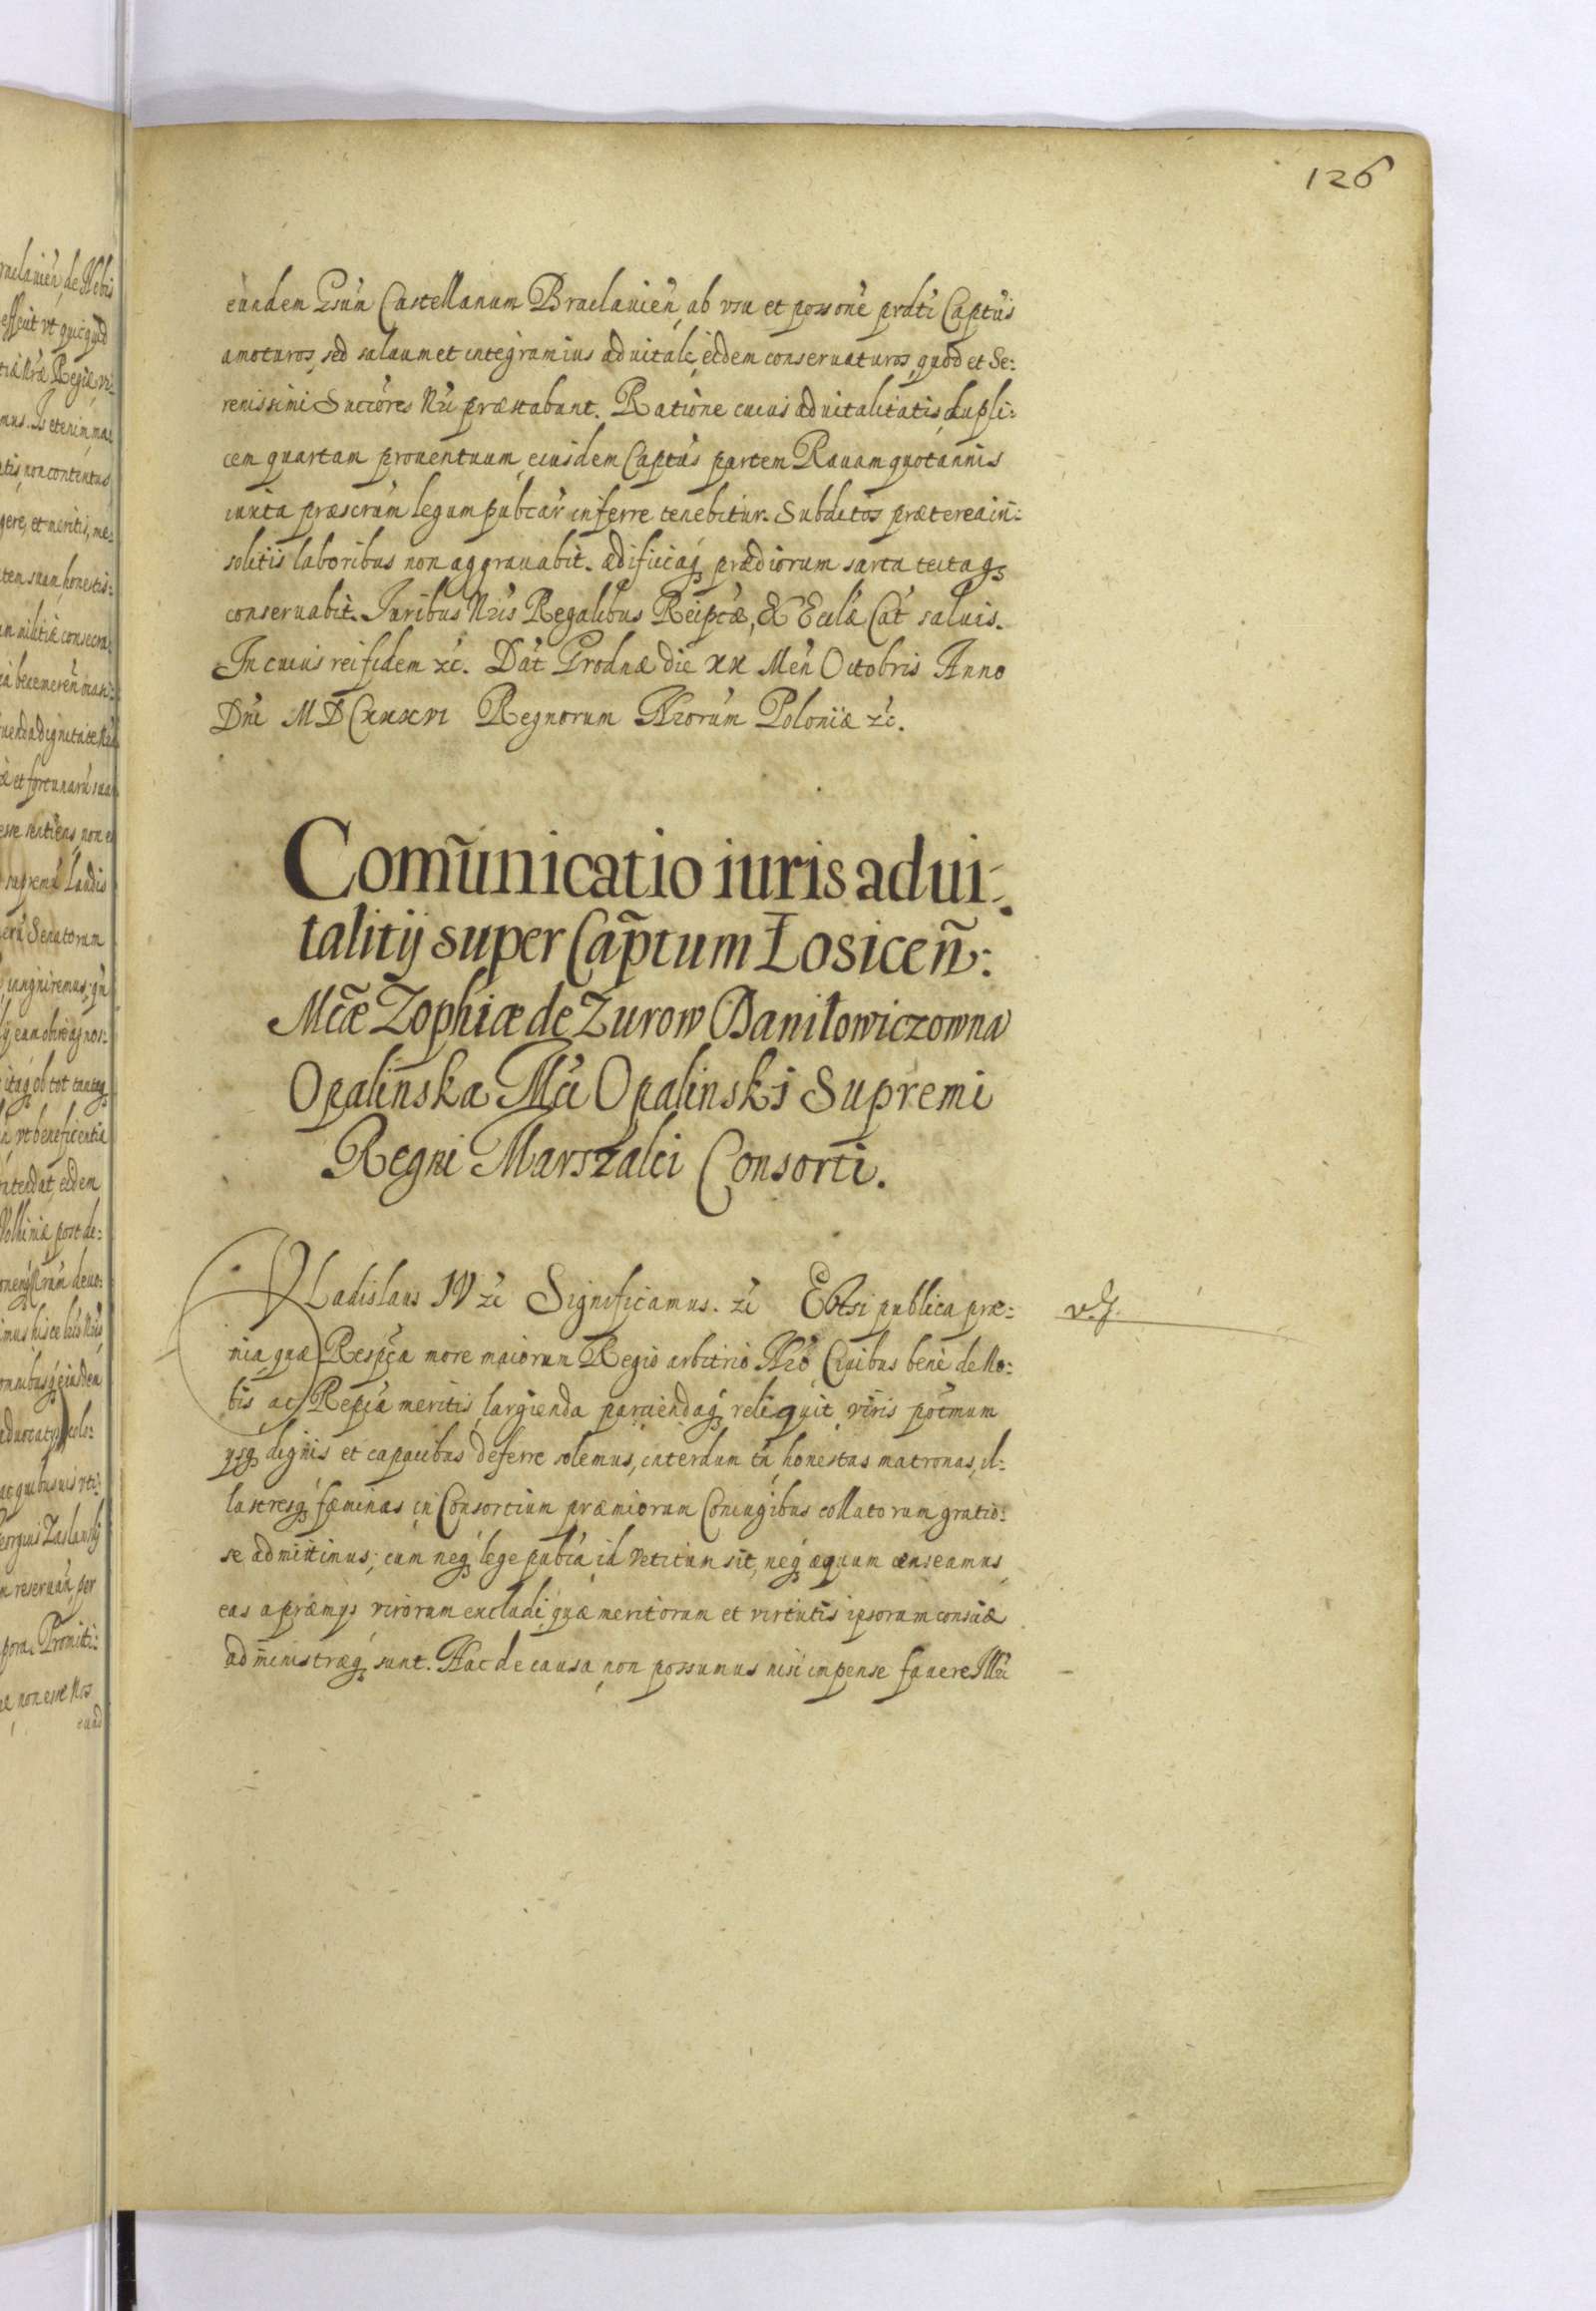 126
eundem Gsum Castellanum Braclavien, ab vsu et possone prdti Captus
amoturos, sed saluum et integrum ius aduitale, eidem conseruaturos, quod et Se:
renissimi Succores Nri præstabunt. Ratione cuius aduitalitatis, dupli:
cem quartam prouentuum, eiusdem Captus partem Rauam quotannis
iuxta præscrum legum pubcar inferre tenebitur. Subditos præterea in:
solitis laboribus non aggrauabit. ædificiaq prædiorum sarta tectaq
conseruabit. Iuribus Nris Regalibus Reipcæ, & Ecclæ Cat saluis.
In cuius rei fidem zc. Dat Grodnæ die xx Men Octobris Anno
Dni MDCxxxvi Regnorum Nrorum Poloniæ zc.
Com̃unicatio iuris adui:
talitij super Cap̃tum Łosiceñ:
Mcæ Zophiæ de Zurow Daniłowiczowna
Opalinska Mci Opalinski Supremi
Regni Marszalci Consorti.
VLadislaus IV zc Significamus. zc Etsi publica præ:
mia quæ Respca more maiorum Regio arbitrio Nro Ciuibus bene de No:
bis ac Repca meritis, largienda parciendaq reliquit, viris potmum
ysq dignis et capacibus deferre solemus, interdum tn honestas matronas, il:
lustresq fæminas in Consortium præmiorum Coniugibus collatorum gratio:
se admittimus; cum neq lege pubca id vetitum sit, neq æquum censeamus
eas a præmys virorum excludi, quæ meritorum et virtutis ipsorum consciæ
administræq sunt. Hac de causa non possumus nisi impense fauere Mci